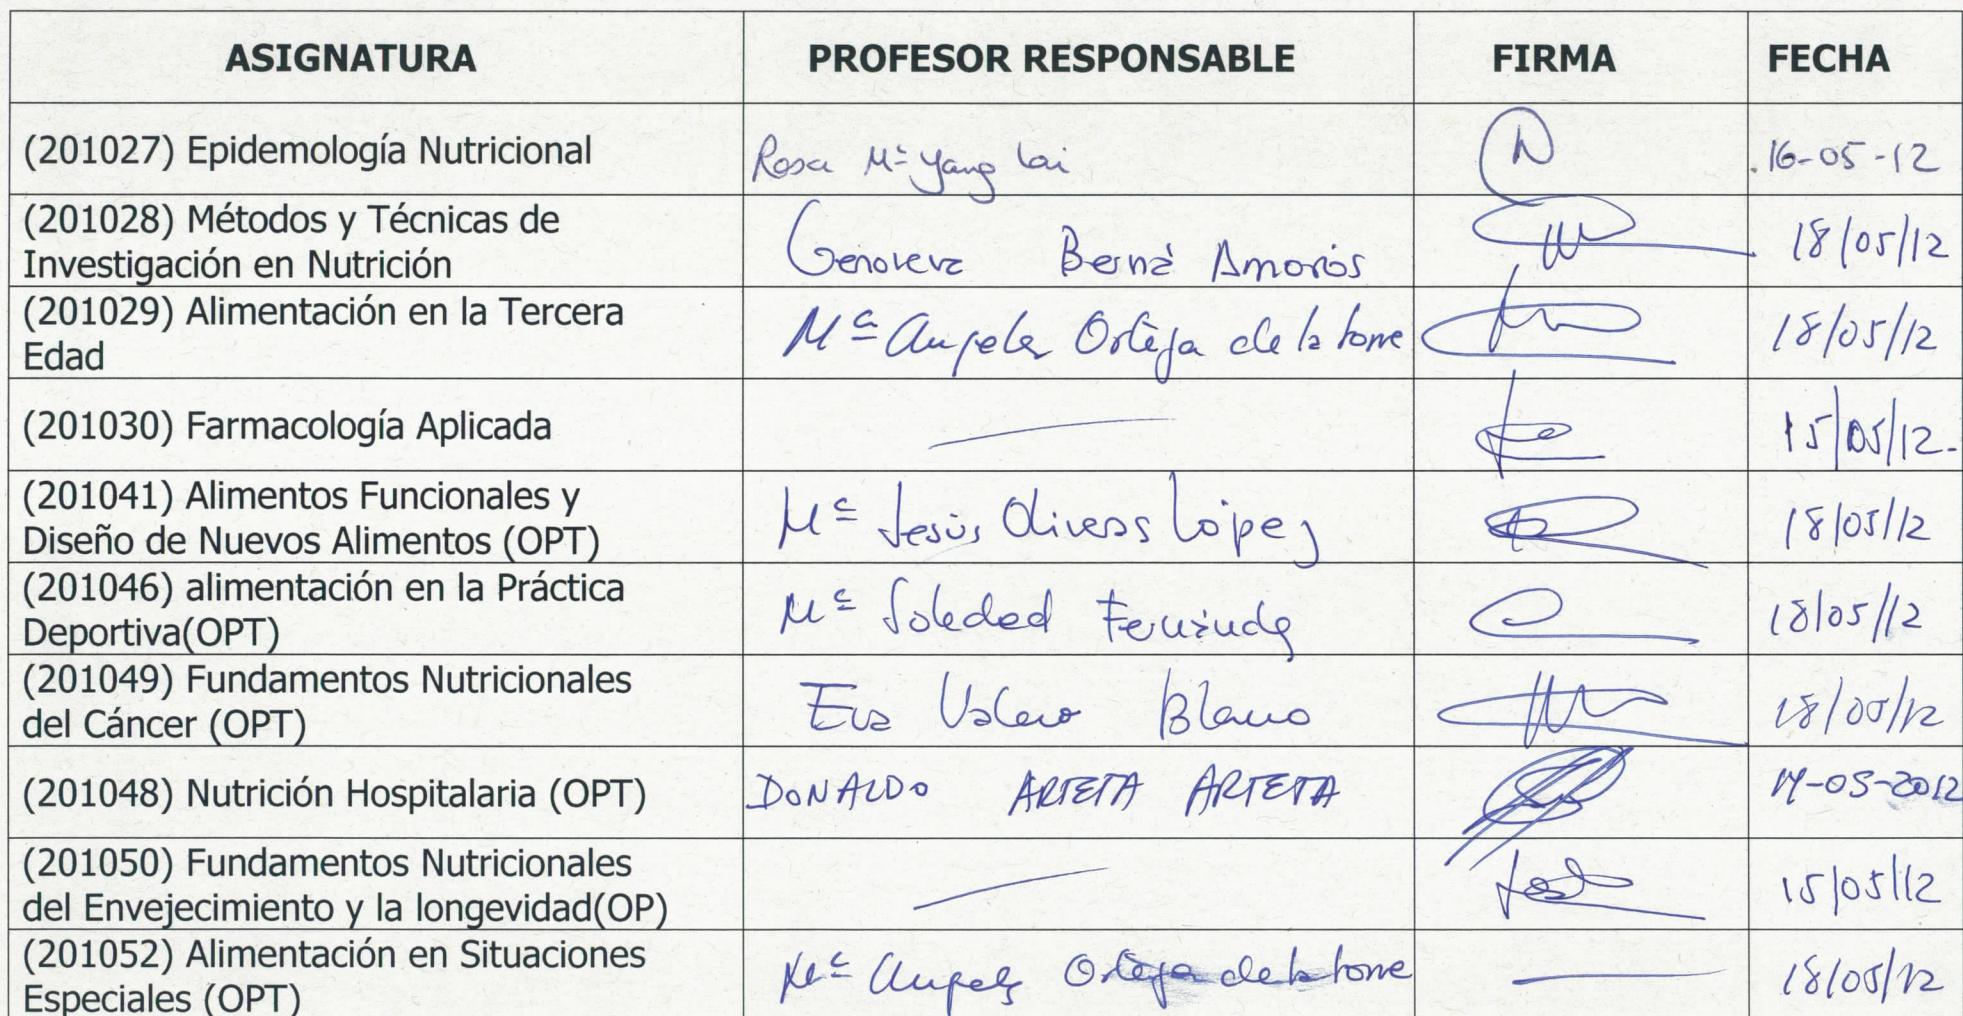 ASIGNATURA PROFESOR RESPONSABLE FIRMA FECHA
(201027) Epidemología Nutricional Rosa Mª Yang Lai 16-05-12
(201028) Métodos y Técnicas de
Investigación en Nutrición Genoveva Berná Amorós 18/05/12
(201029) Alimentación en la Tercera
Edad Mª Angeles Ortega de la Torre 18/05/12
(201030) Farmacología Aplicada 15/05/12.
(201041) Alimentos Funcionales y
Diseño de Nuevos Alimentos (OPT) Mª Jesús Oliveras López 18/05/12
(201046) alimentación en la Práctica
Deportiva(OPT) Mª Soledad Fernández 18/05/12
(201049) Fundamentos Nutricionales
del Cáncer (OPT) Eva Valero Blanco 18/05/12
(201048) Nutrición Hospitalaria (OPT) DONALDO ARTETA ARTETA
(201050) Fundamentos Nutricionales
del Envejecimiento y la longevidad(OP) 15/05/12
(201052) Alimentación en Situaciones
Especiales (OPT) Mª Angeles Ortega de la Torre 18/05/12